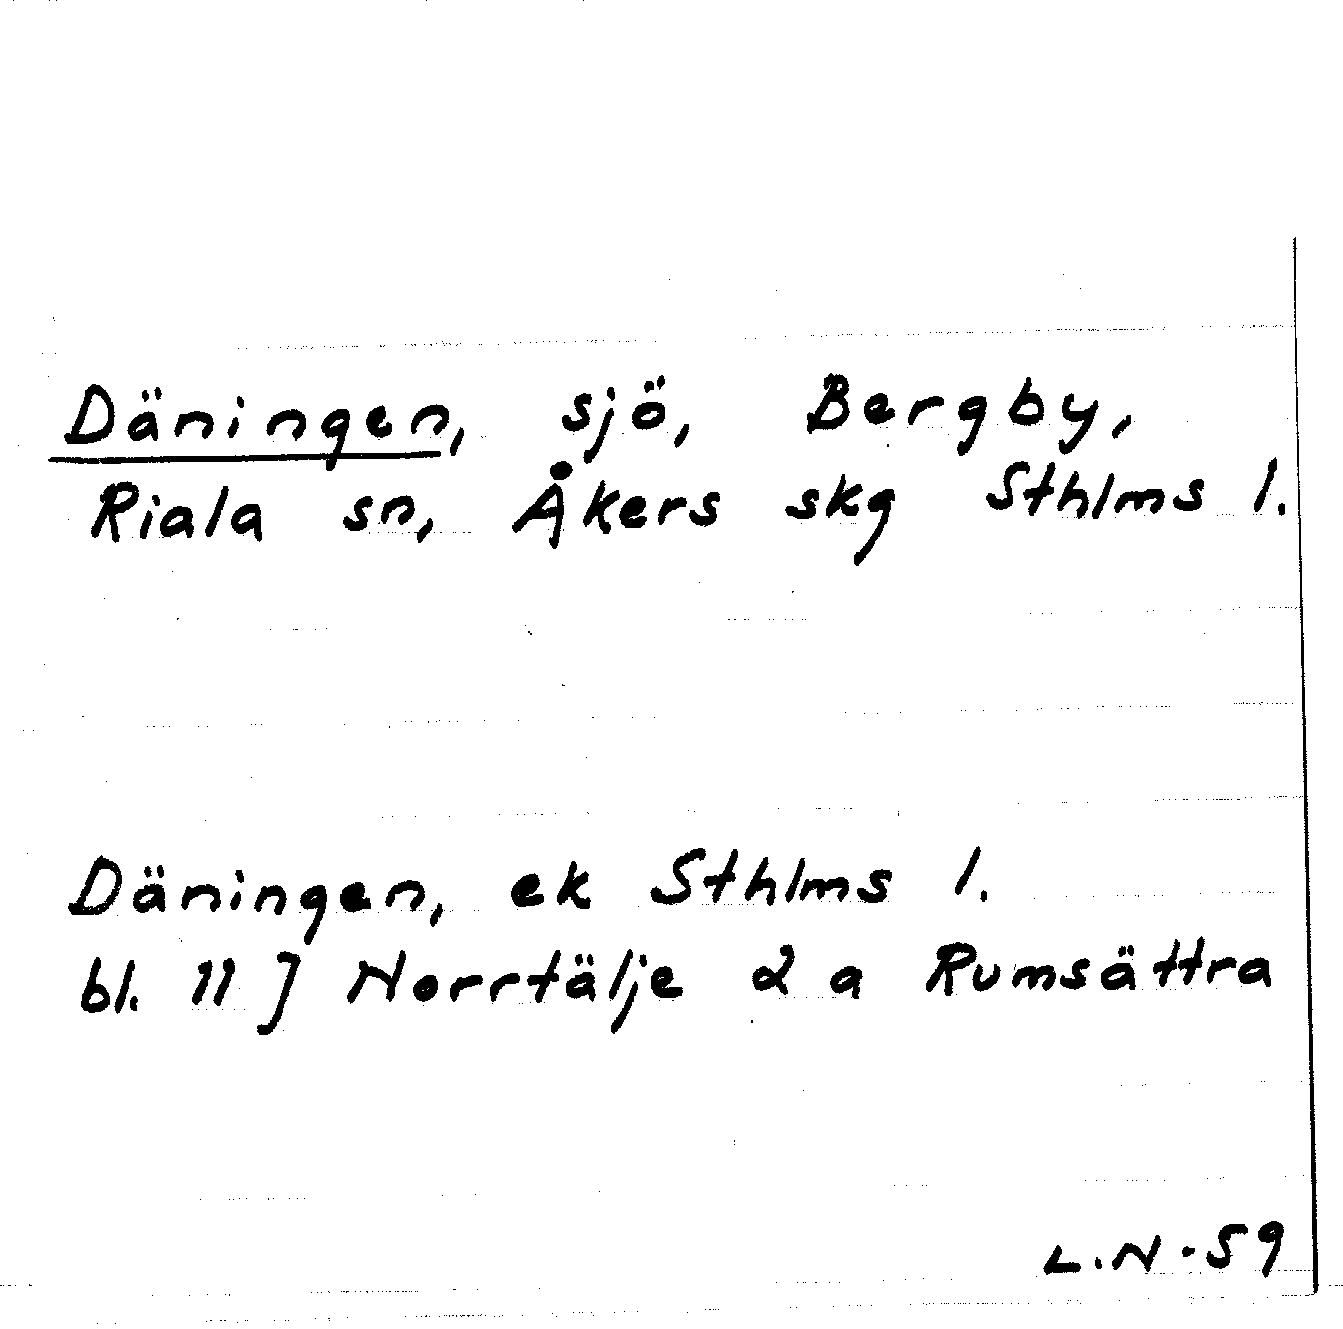 Däningen, sjö, Bergby,
Riala sn, Åkers skg Sthlms l.
Däningen, ek Sthlms l.
bl. 11 J Norrtälje 2 a Rumsättra
L.N. 59